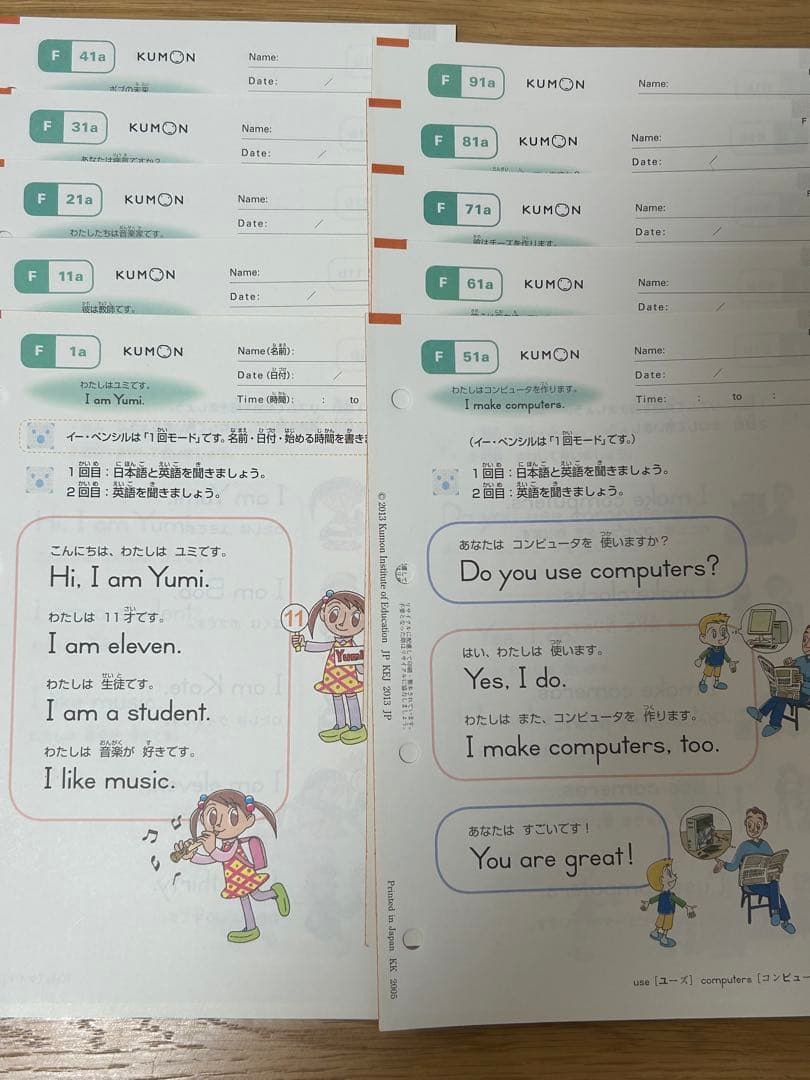 F 41a KUMON Name:
Date: /
ボブの未来
F 31a KUMON Name:
Date: /
あなたは病気ですか?
F 21a KUMON Name:
Date: /
わたしたちは音楽家です。
F 11a KUMON Name:
Date: /
彼は教師です。
F 1a KUMON Name(名前):
Date(日付): /
Time(時間): : to
わたしはユミです。
I am Yumi.
イー・ペンシルは「1回モード」です。名前・日付・始める時間を書き
1回目:日本語と英語を聞きましょう。
2回目:英語を聞きましょう。
こんにちは、わたしは ユミです。
Hi, I am Yumi.
わたしは 11才です。
I am eleven.
わたしは 生徒です。
I am a student.
わたしは 音楽が 好きです。
I like music.
11
Yumi
F 91a KUMON Name:
F 81a KUMON Name:
Date: /
F 71a KUMON Name:
Date: /
彼はチーズを作ります。
F 61a KUMON Name:
Date: /
F 51a KUMON Name:
Date: /
Time: : to :
わたしはコンピュータを作ります。
I make computers.
(イー・ペンシルは「1回モード」です。)
1回目:日本語と英語を聞きましょう。
2回目:英語を聞きましょう。
あなたは コンピュータを 使いますか?
Do you use computers?
はい、わたしは 使います。
Yes, I do.
わたしは また、コンピュータを 作ります。
I make computers, too.
あなたは すごいです!
You are great!
use [ユーズ] computers [コンピュー
© 2013 Kumon Institute of Education JP KEJ 2013 JP
Printed in Japan KK 2005